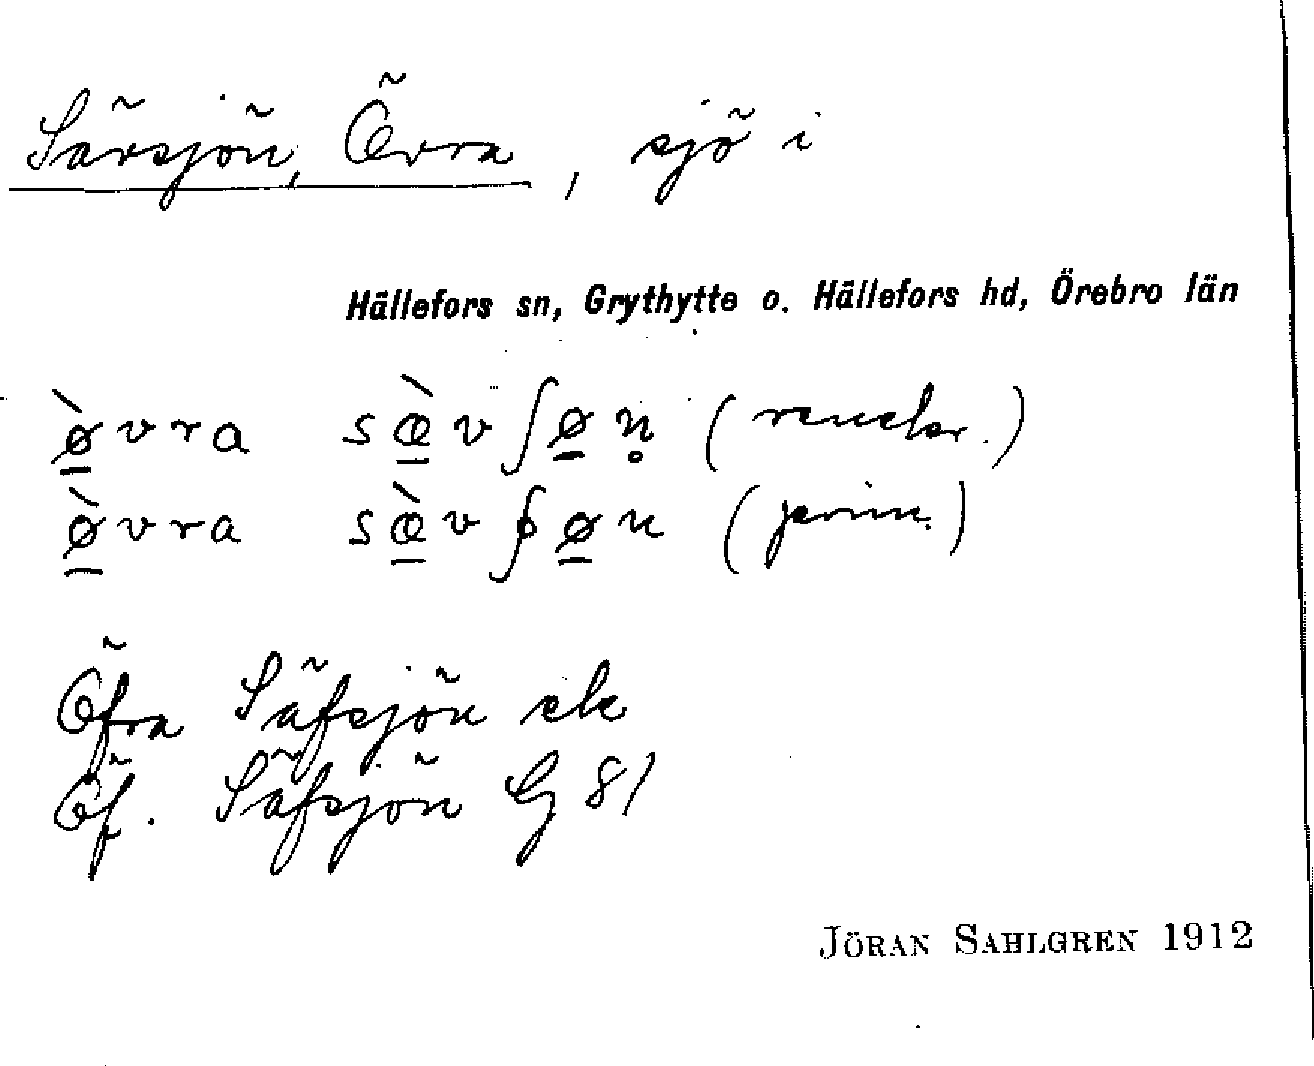 Sävsjön, Övra, sjö i
Hällefors sn, Grythytte o. Hällefors hd, Örebro län
ø̱̀vra sæ̱̀vʃø̱n̥ ( )
ø̱̀vra sæ̱̀v ø̱n ( )
Öfra Säfsjön ek
Öf. Säfsjön G 81
JÖRAN SAHLGREN 1912